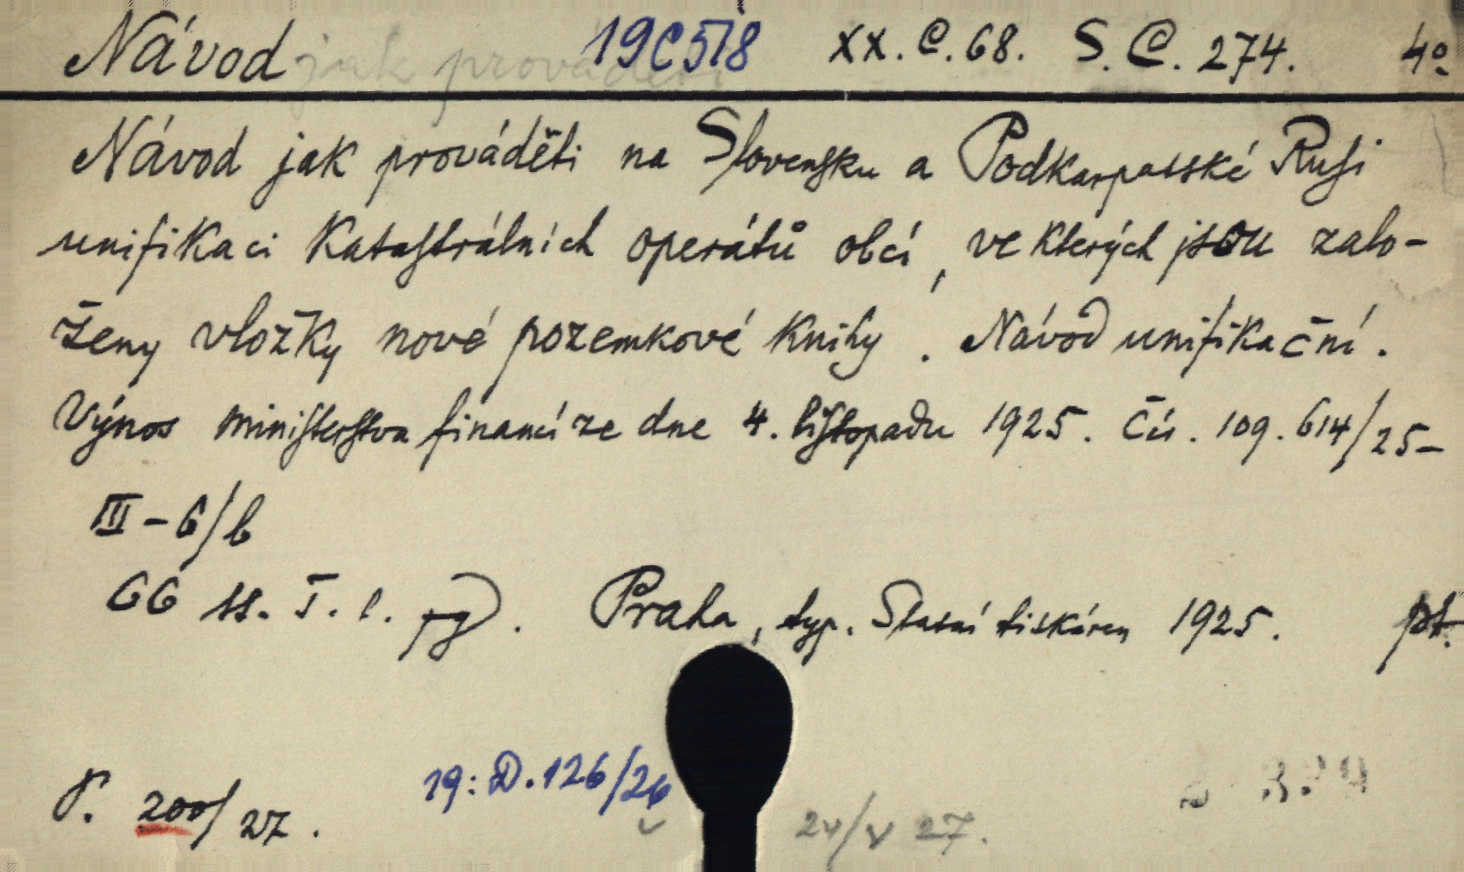 Návod jak prováděti 19C518 XX.C.68. S.C.274. 4º
Návod jak prováděti na Slovensku a Podkarpatské Rusi
unifikaci katastrálních operátů obcí, ve kterých jsou zalo-
ženy vložky nové pozemkové knihy. Návod unifikační.
Výnos ministerstva financí ze dne 4. listopadu 1925. Čís. 109.614/25-
III-6/b
66 ss. Praha, typ. Státní tiskáren 1925. pt.
200/27. 19:D.126/26
27.